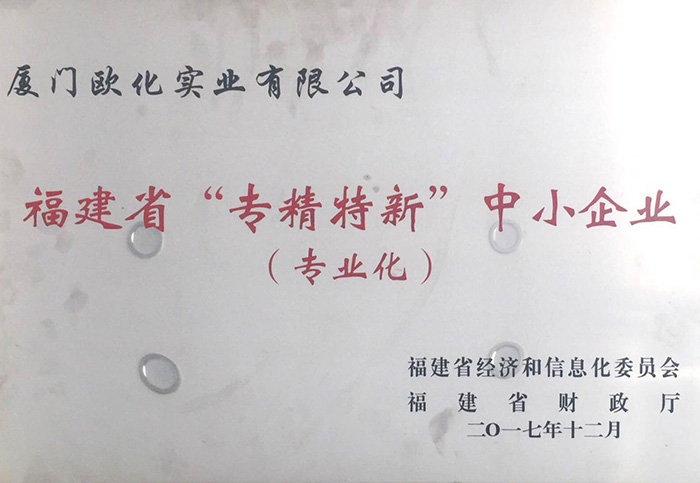 厦门欧化实业有限公司
福建省“专精特新”中小企业
（专业化）
福建省经济和信息化委员会
福建省财政厅
二O一七年十二月